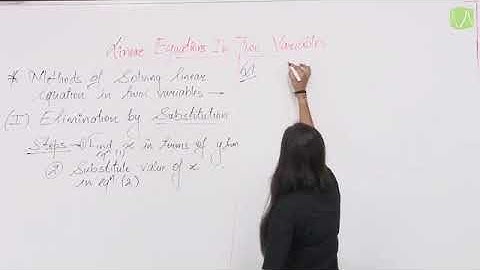 Linear Equations In Two Variables
* Methods of Solving linear
equation in two variables →
(I) Elimination by Substitution
Steps ① Find x in terms of y from
eqⁿ (1)
② Substitute value of x
in eqⁿ (2)